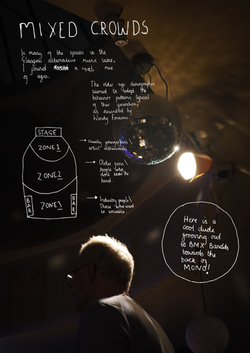 MIXED CROWDS
In many of the spaces in the
Glasgow alternative music scene,
I found a real mix
of ages.
The older age demographic
seemed to "adopt the
behaviour patterns typical
of their generation,"
as described by
Wendy Fonarow.
STAGE
ZONE 1
ZONE 2
ZONE 3
BAR
BAR
Usually younger fans
who
Older fans/
people who
don't know the
band.
Industry people/
Those who want
to socialise
Here is a
cool dude
grooving out
to BMX Bandits
towards the
back of
MONO!